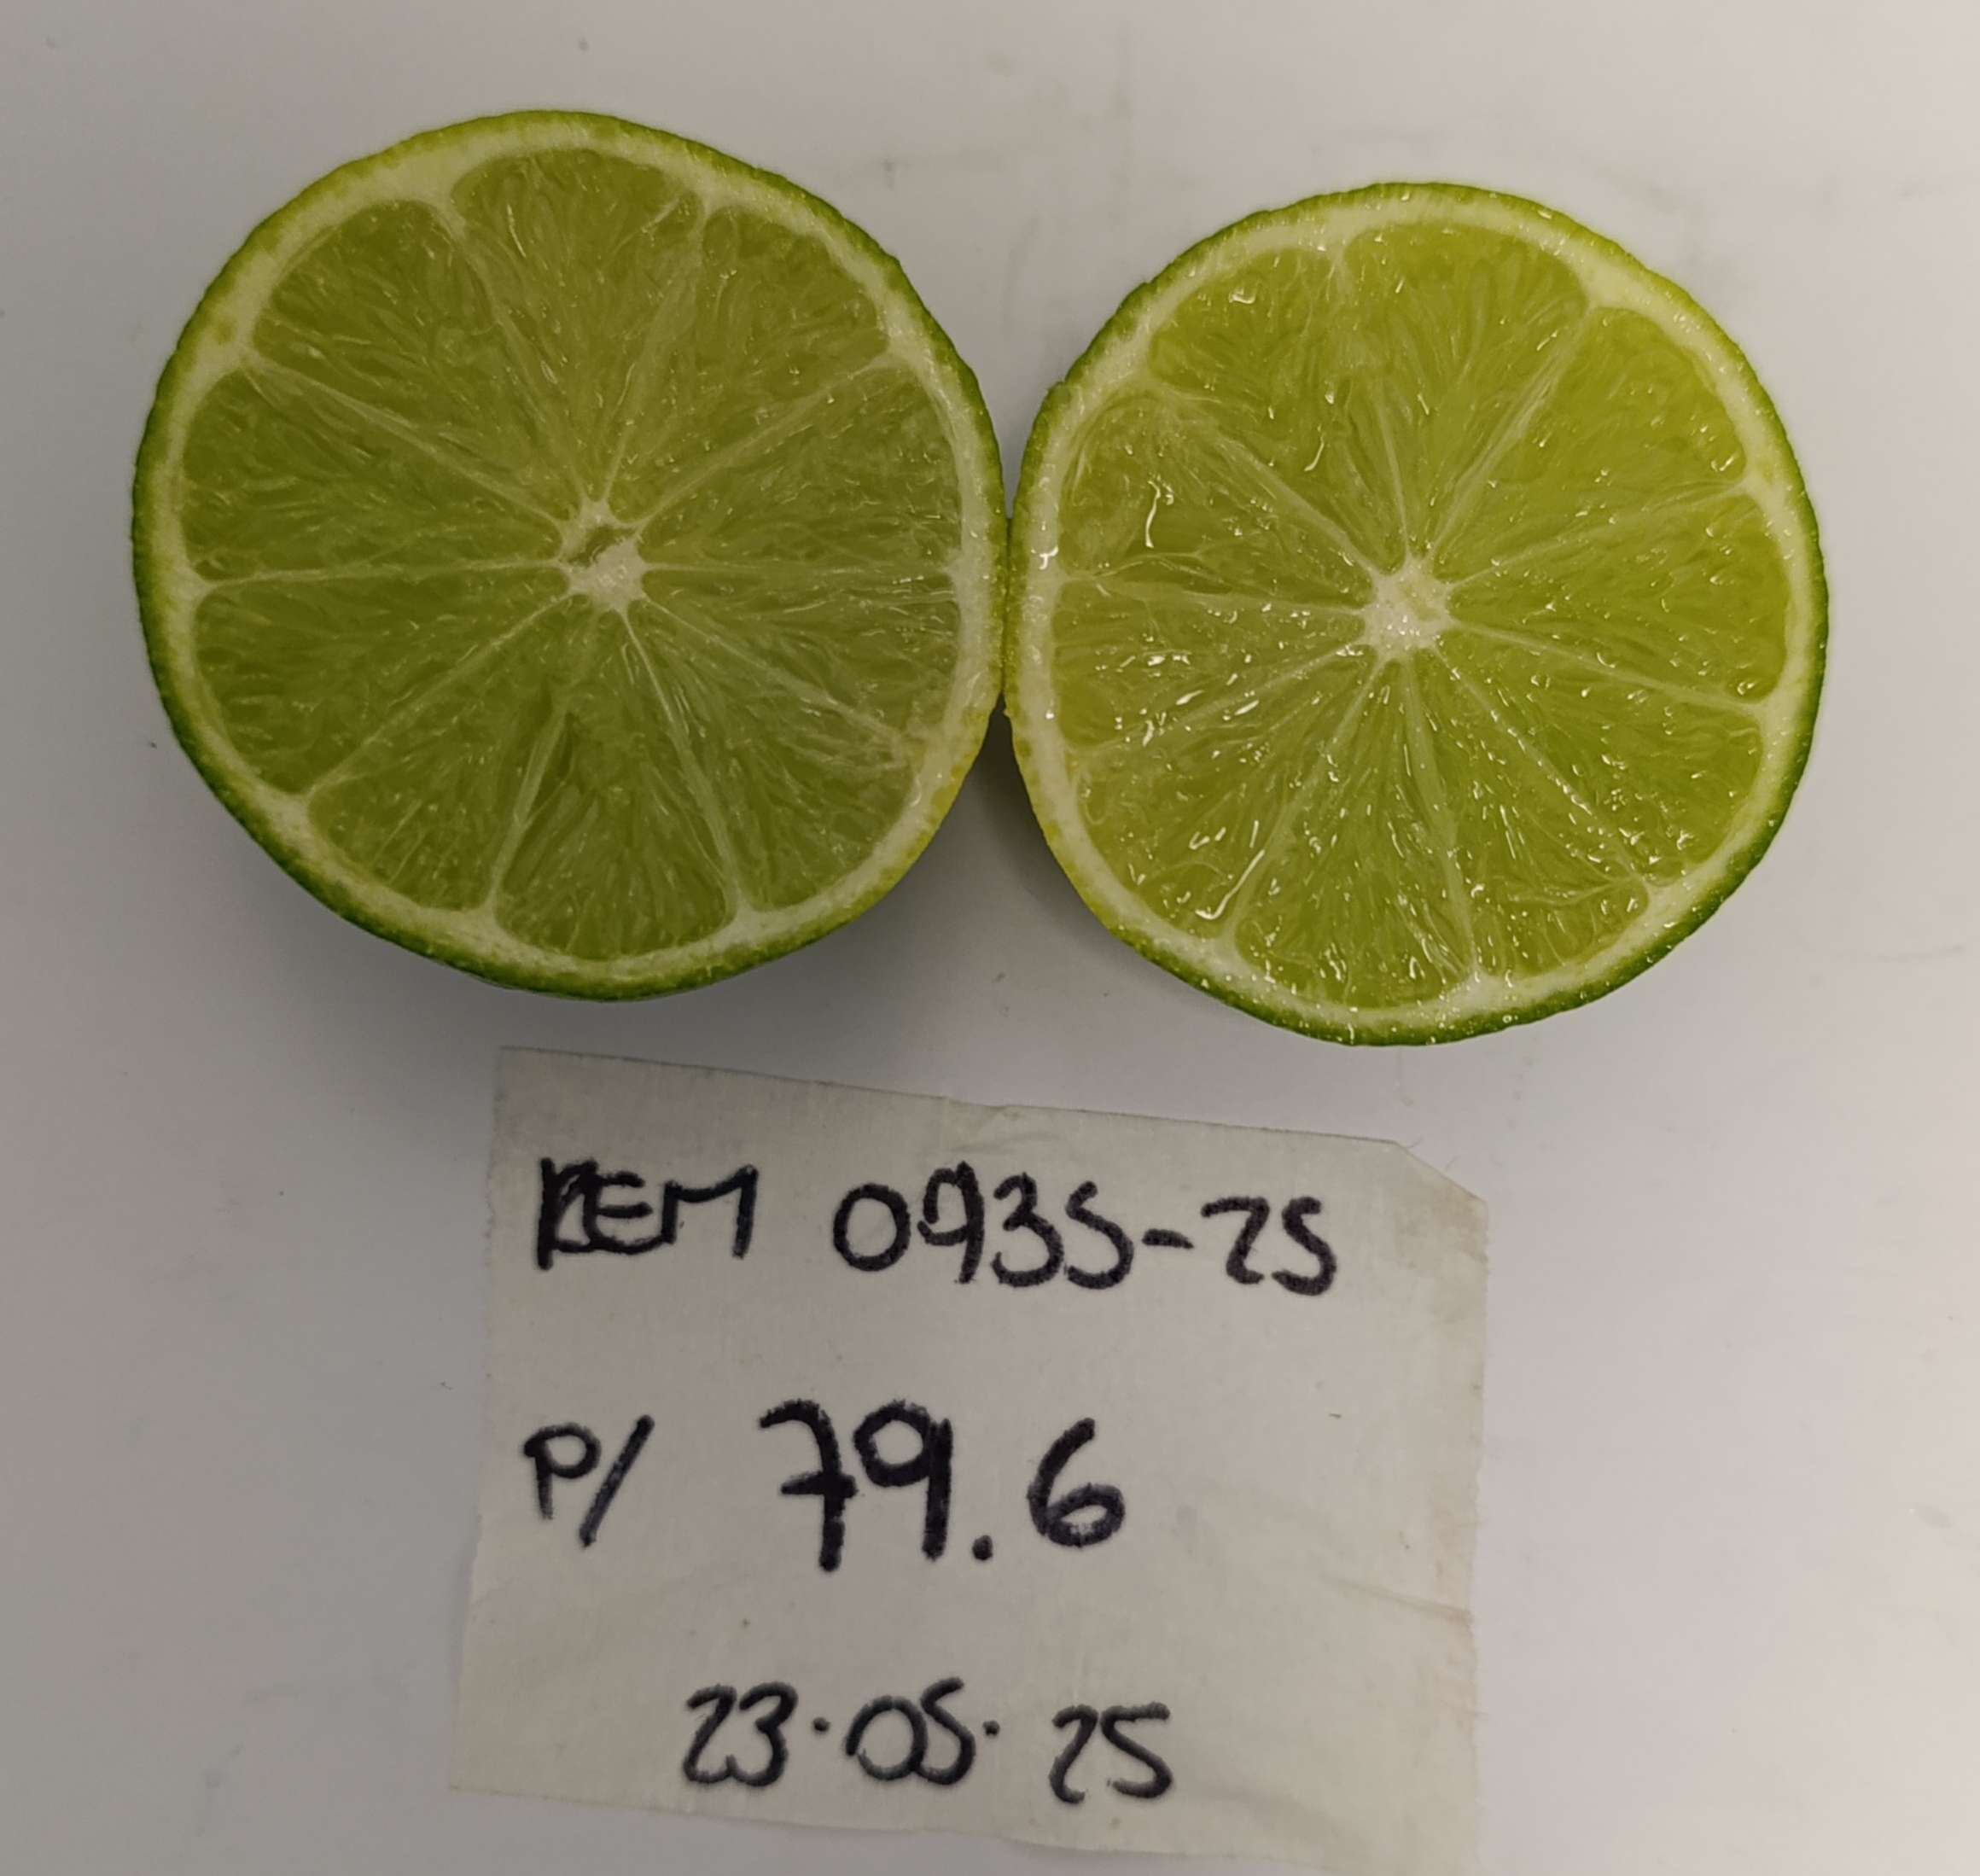 REM 0935-25
P/ 79.6
23.05.25